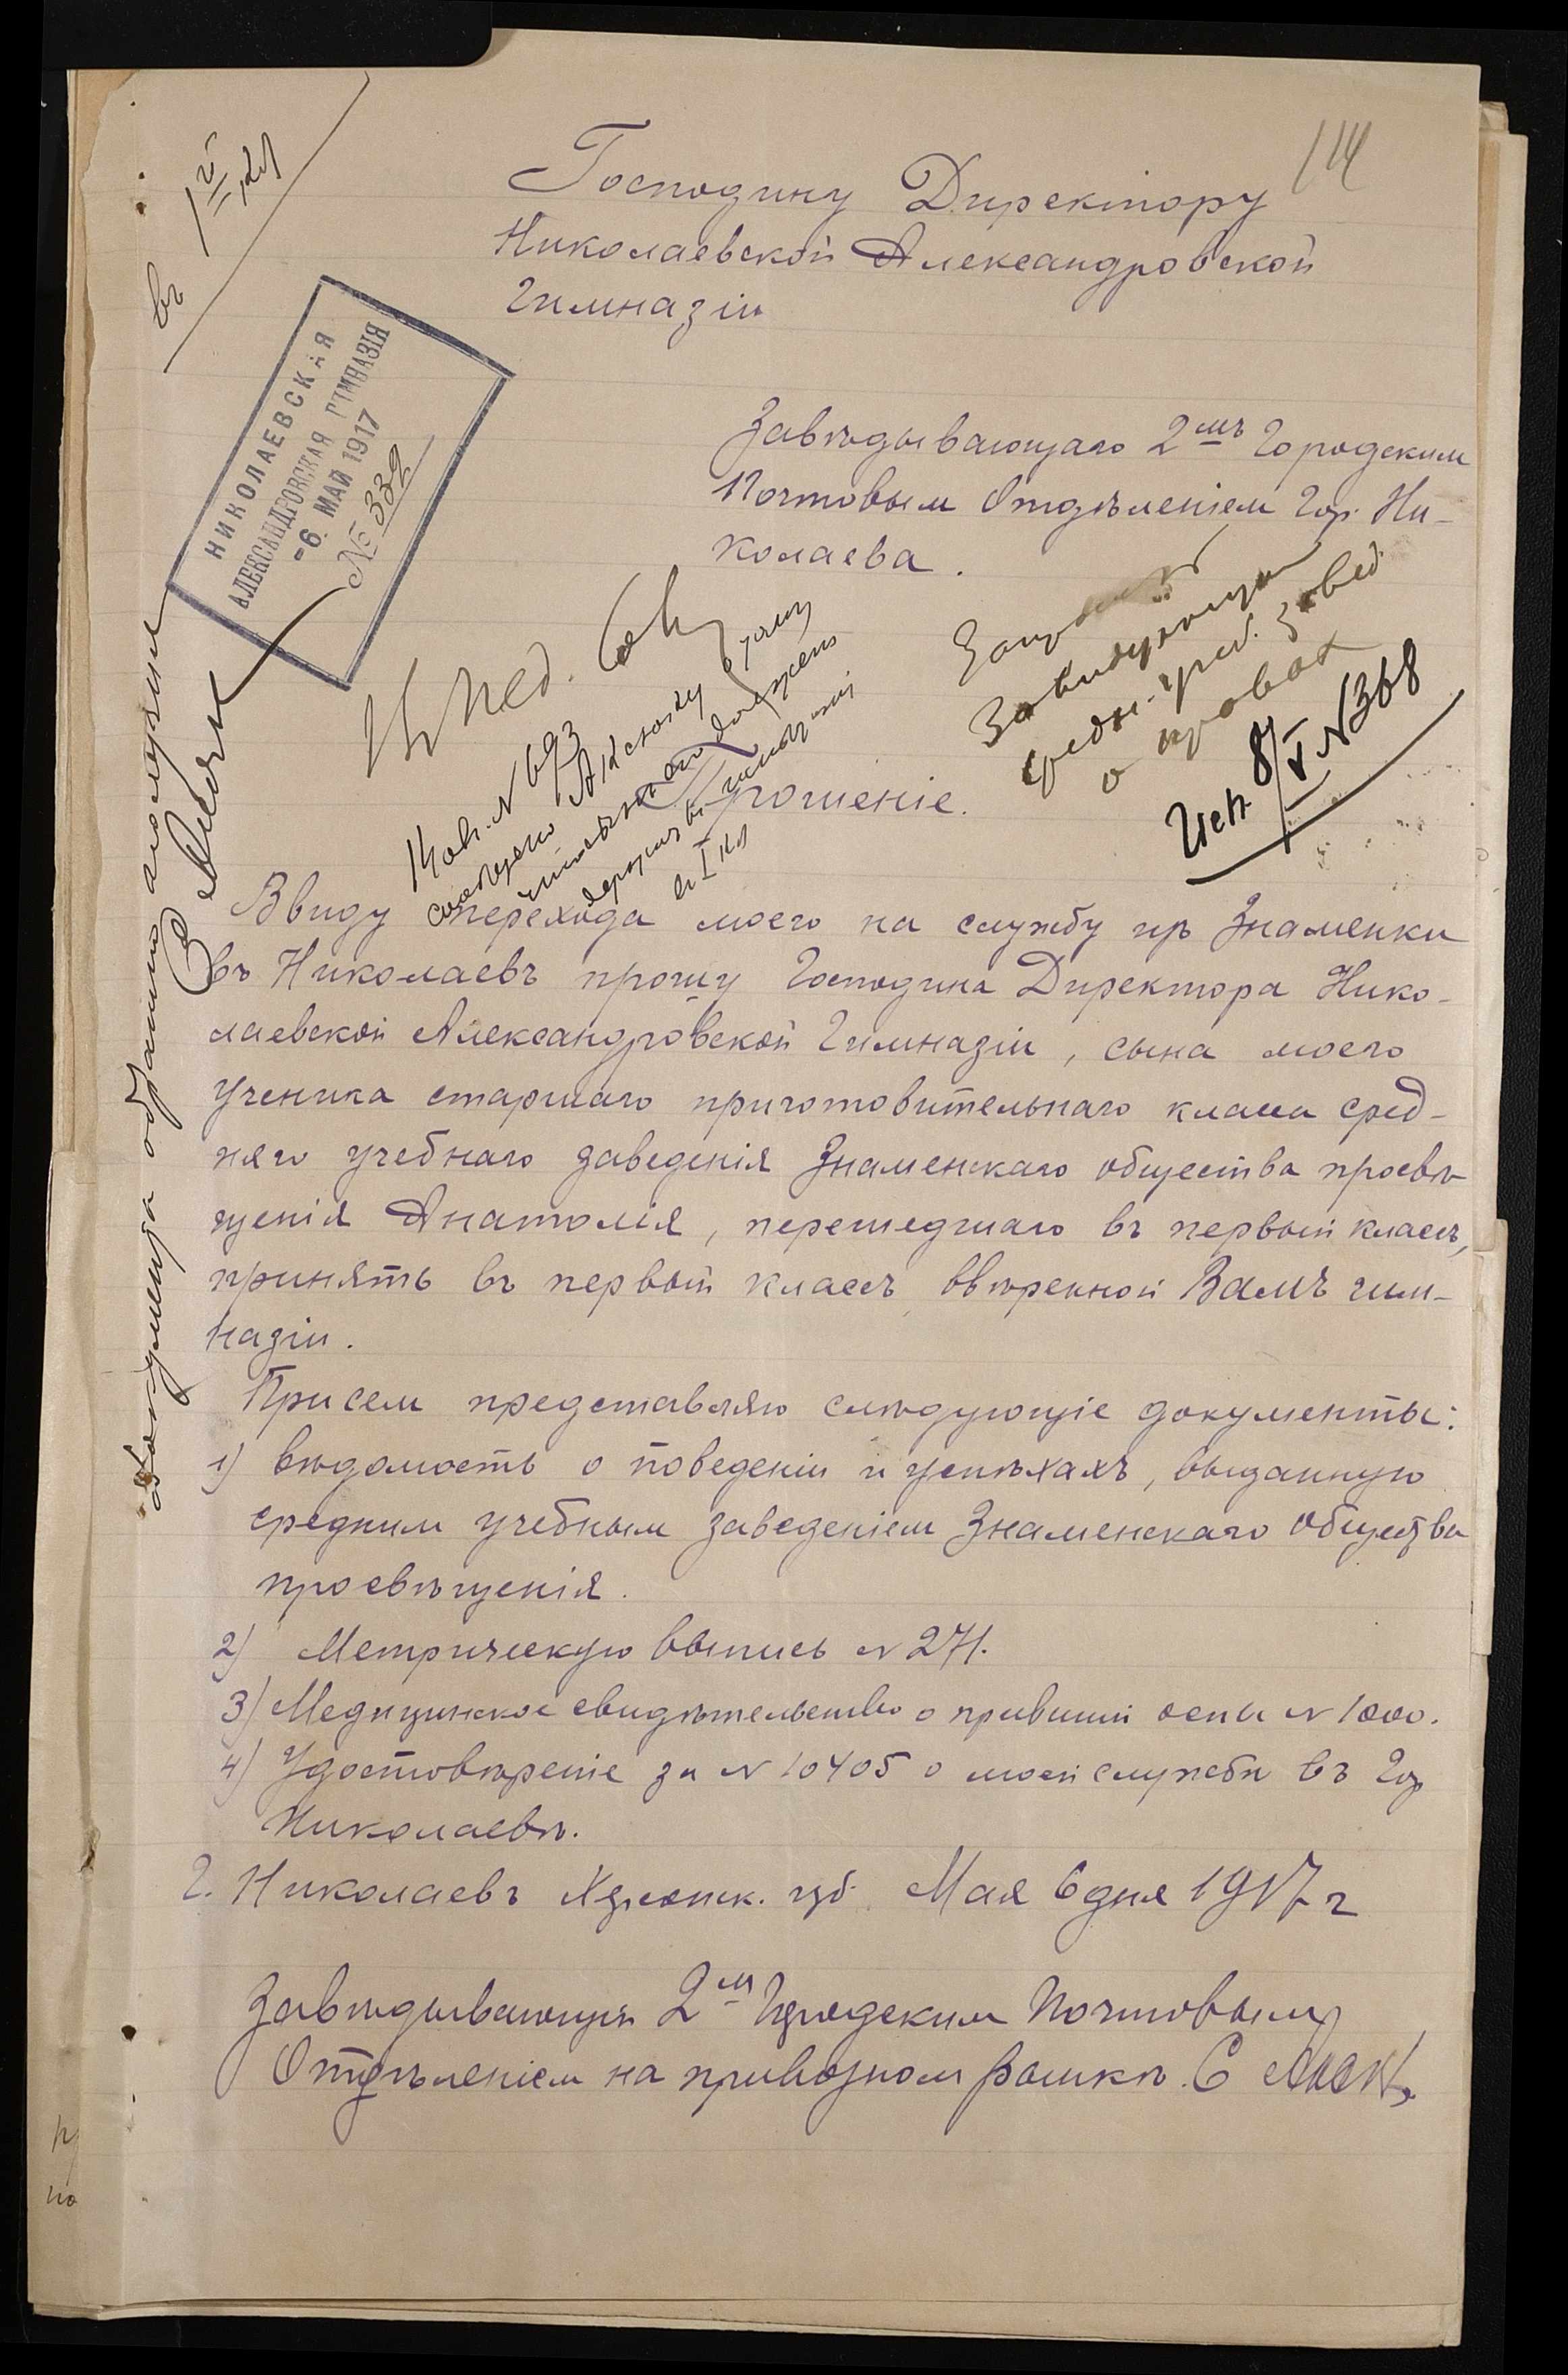 114
Господину Директору
Николаевской Александровской
Гимназіи
въ
НИКОЛАЕВСКАЯ
АЛЕКСАНДРОВСКАЯ ГИМНАЗІЯ
-6. МАЙ 1917
№ 332
Завѣдывающаго 2мъ Городским
Почтовым Отдѣленіем Гор. Ни-
колаева.
Въ Пед. Сов
Завѣдующ
средн. учеб. завед.
о правах
Исп. 8/V № 368
№ 693
сообщено
въ I кл
Прошеніе.
Ввиду перехода моего на службу изъ Знаменки
въ Николаевъ прошу Господина Директора Нико-
лаевской Александровской Гимназіи, сына моего
ученика старшаго приготовительнаго класса сред-
няго учебнаго заведенія Знаменскаго общества просвѣ-
щенія Анатолія, перешедшаго въ первый классъ,
принять въ первый классъ ввѣренной Вамъ гим-
назіи.
Присем представляю слѣдующіе документы:
1) вѣдомость о поведеніи и успѣхахъ, выданную
средним учебным заведеніем Знаменскаго Общества
просвѣщенія.
2) Метрическую выпись № 271.
3) Медицинское свидѣтельство о привитіи оспы № 1000.
4) Удостовѣреніе за № 10405 о моей службѣ въ Гор
Николаевѣ.
Г. Николаевъ Херсонск. губ. Мая 6 дня 1917 г
Завѣдывающій 2м Городским Почтовым
Отдѣленіем на привозном рынкѣ. С
Документы обратно получил